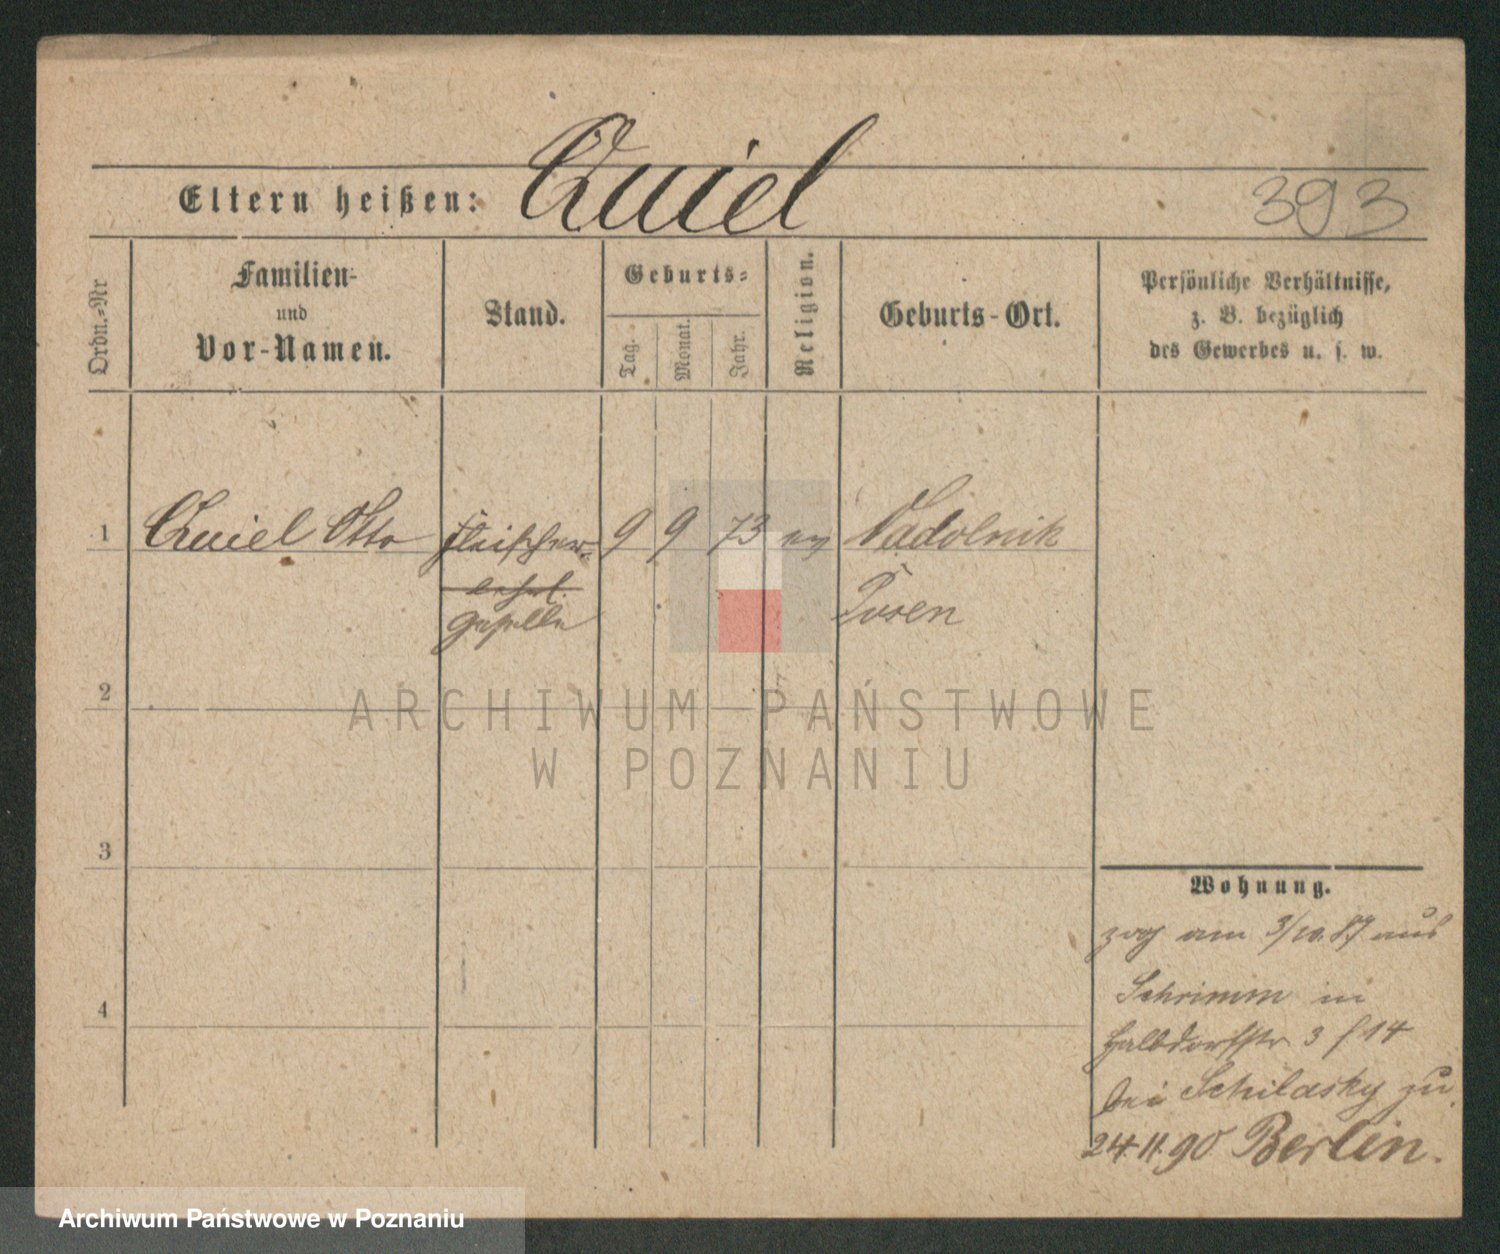 Quiel
Eltern heißen:
393
Ordn.-Nr
Familien-
und
Vor-Namen.
Stand.
Geburts-
Tag.
Monat.
Jahr.
Religion.
Geburts-Ort.
Persönliche Verhältnisse,
z. B. bezüglich
des Gewerbes u. s. w.
1 Quiel Otto Fleischer- 9 9 73 ev Nadolnik
lehrl.
geselle Posen
2
3
4
Wohnung.
zog am 3/10.87 aus
Schrimm in
Halbdorfstr 3 f 14
bei Schilasky zu
24 11.90 Berlin.
ARCHIWUM PAŃSTWOWE
W POZNANIU
Archiwum Państwowe w Poznaniu